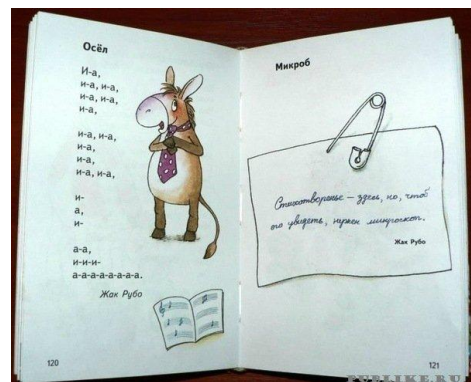 Осёл
И-а,
и-а, и-а,
и-а, и-а,
и-а,
и-а, и-а,
и-а,
и-а,
и-а, и-а,
и-
а,
и-
а-а,
и-и-и-
а-а-а-а-а-а-а-а.
Жак Рубо
120
Микроб
Стихотворенье — здесь, но, чтоб
его увидеть, нужен микроскоп.
Жак Рубо
121
PUBLIKE.RU